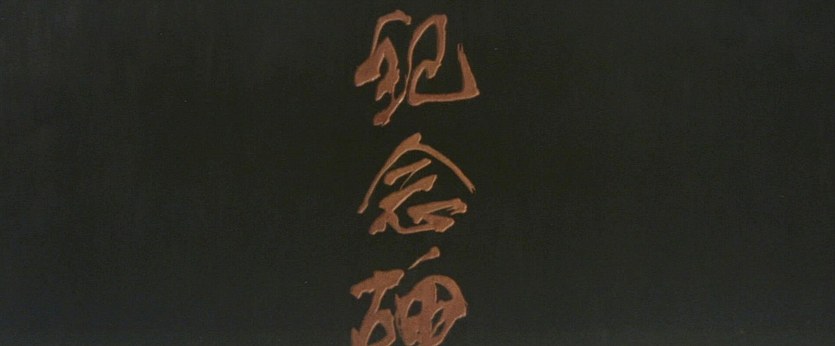 紀念碑